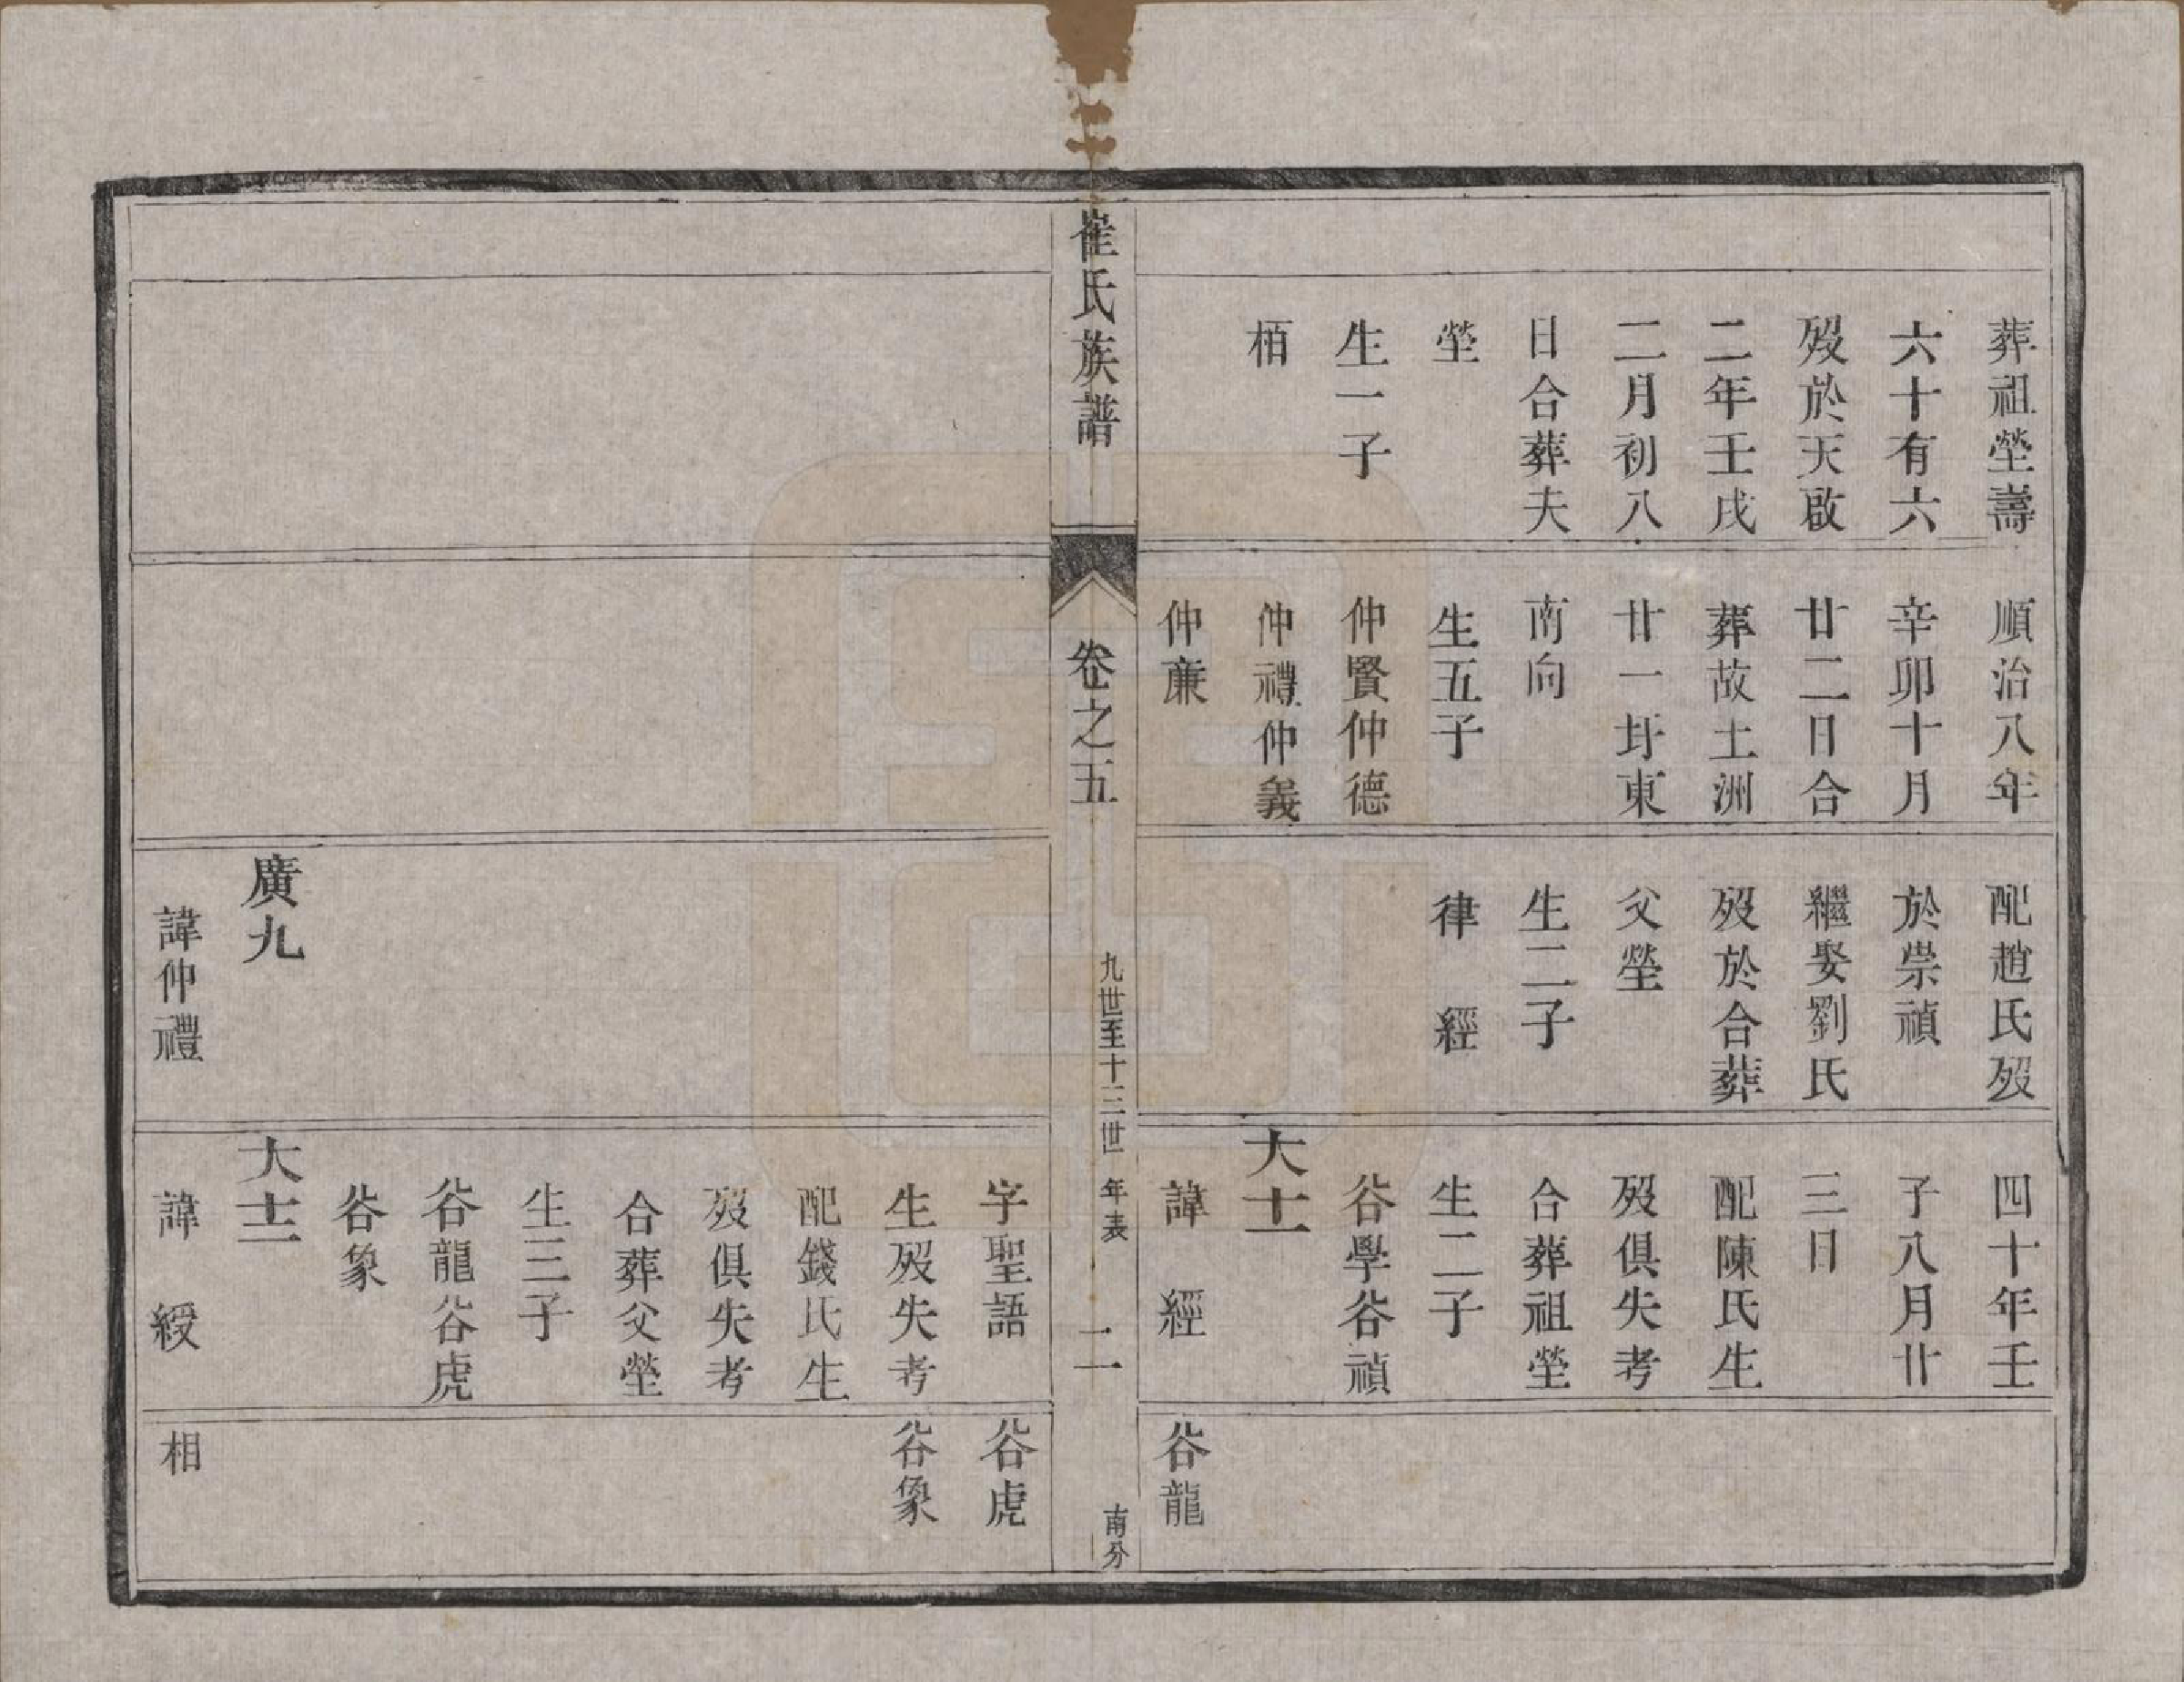 葬祖塋壽
六十有六
歿於天啟
二年壬戌
二月初八
日合葬夫
塋
生一子
栢
順治八年
辛卯十月
廿二日合
葬故土洲
廿一圩東
南向
生五子
仲賢仲德
仲禮仲義
仲亷
配趙氏歿
於崇禎
繼娶劉氏
歿於合葬
父塋
生二子
律 經
四十年壬
子八月廿
三日
配陳氏生
歿俱失考
合葬祖塋
生二子
谷學谷禎
大十一
諱 經
谷龍
崔氏族譜
卷之五
九世至十三世 年表
二
南分
廣九
諱仲禮
字聖語
生歿失考
配錢氏生
歿俱失考
合葬父塋
生三子
谷龍谷虎
谷象
大十二
諱 綬
谷虎
谷象
相